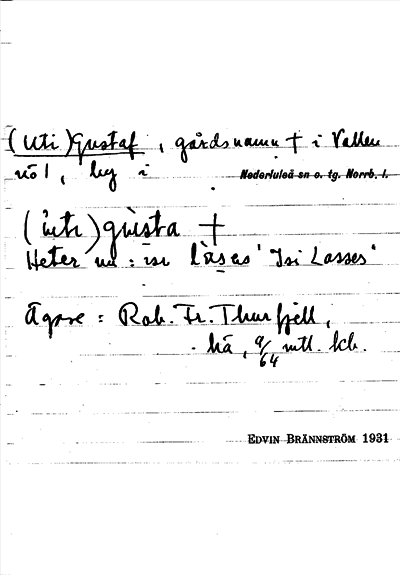 (Uti) Gustaf, gårdsnamn † i Vallen
nö 1, by i Nederluleå sn o. tg. Norrb. l.
(ùti) gùsta †
Heter nu : isi làsas 'Isi Lasses'
Ägare : Rob. Fr. Thurfjell,
hä, 9/64 mtl. kb.
EDVIN BRÄNNSTRÖM 1931